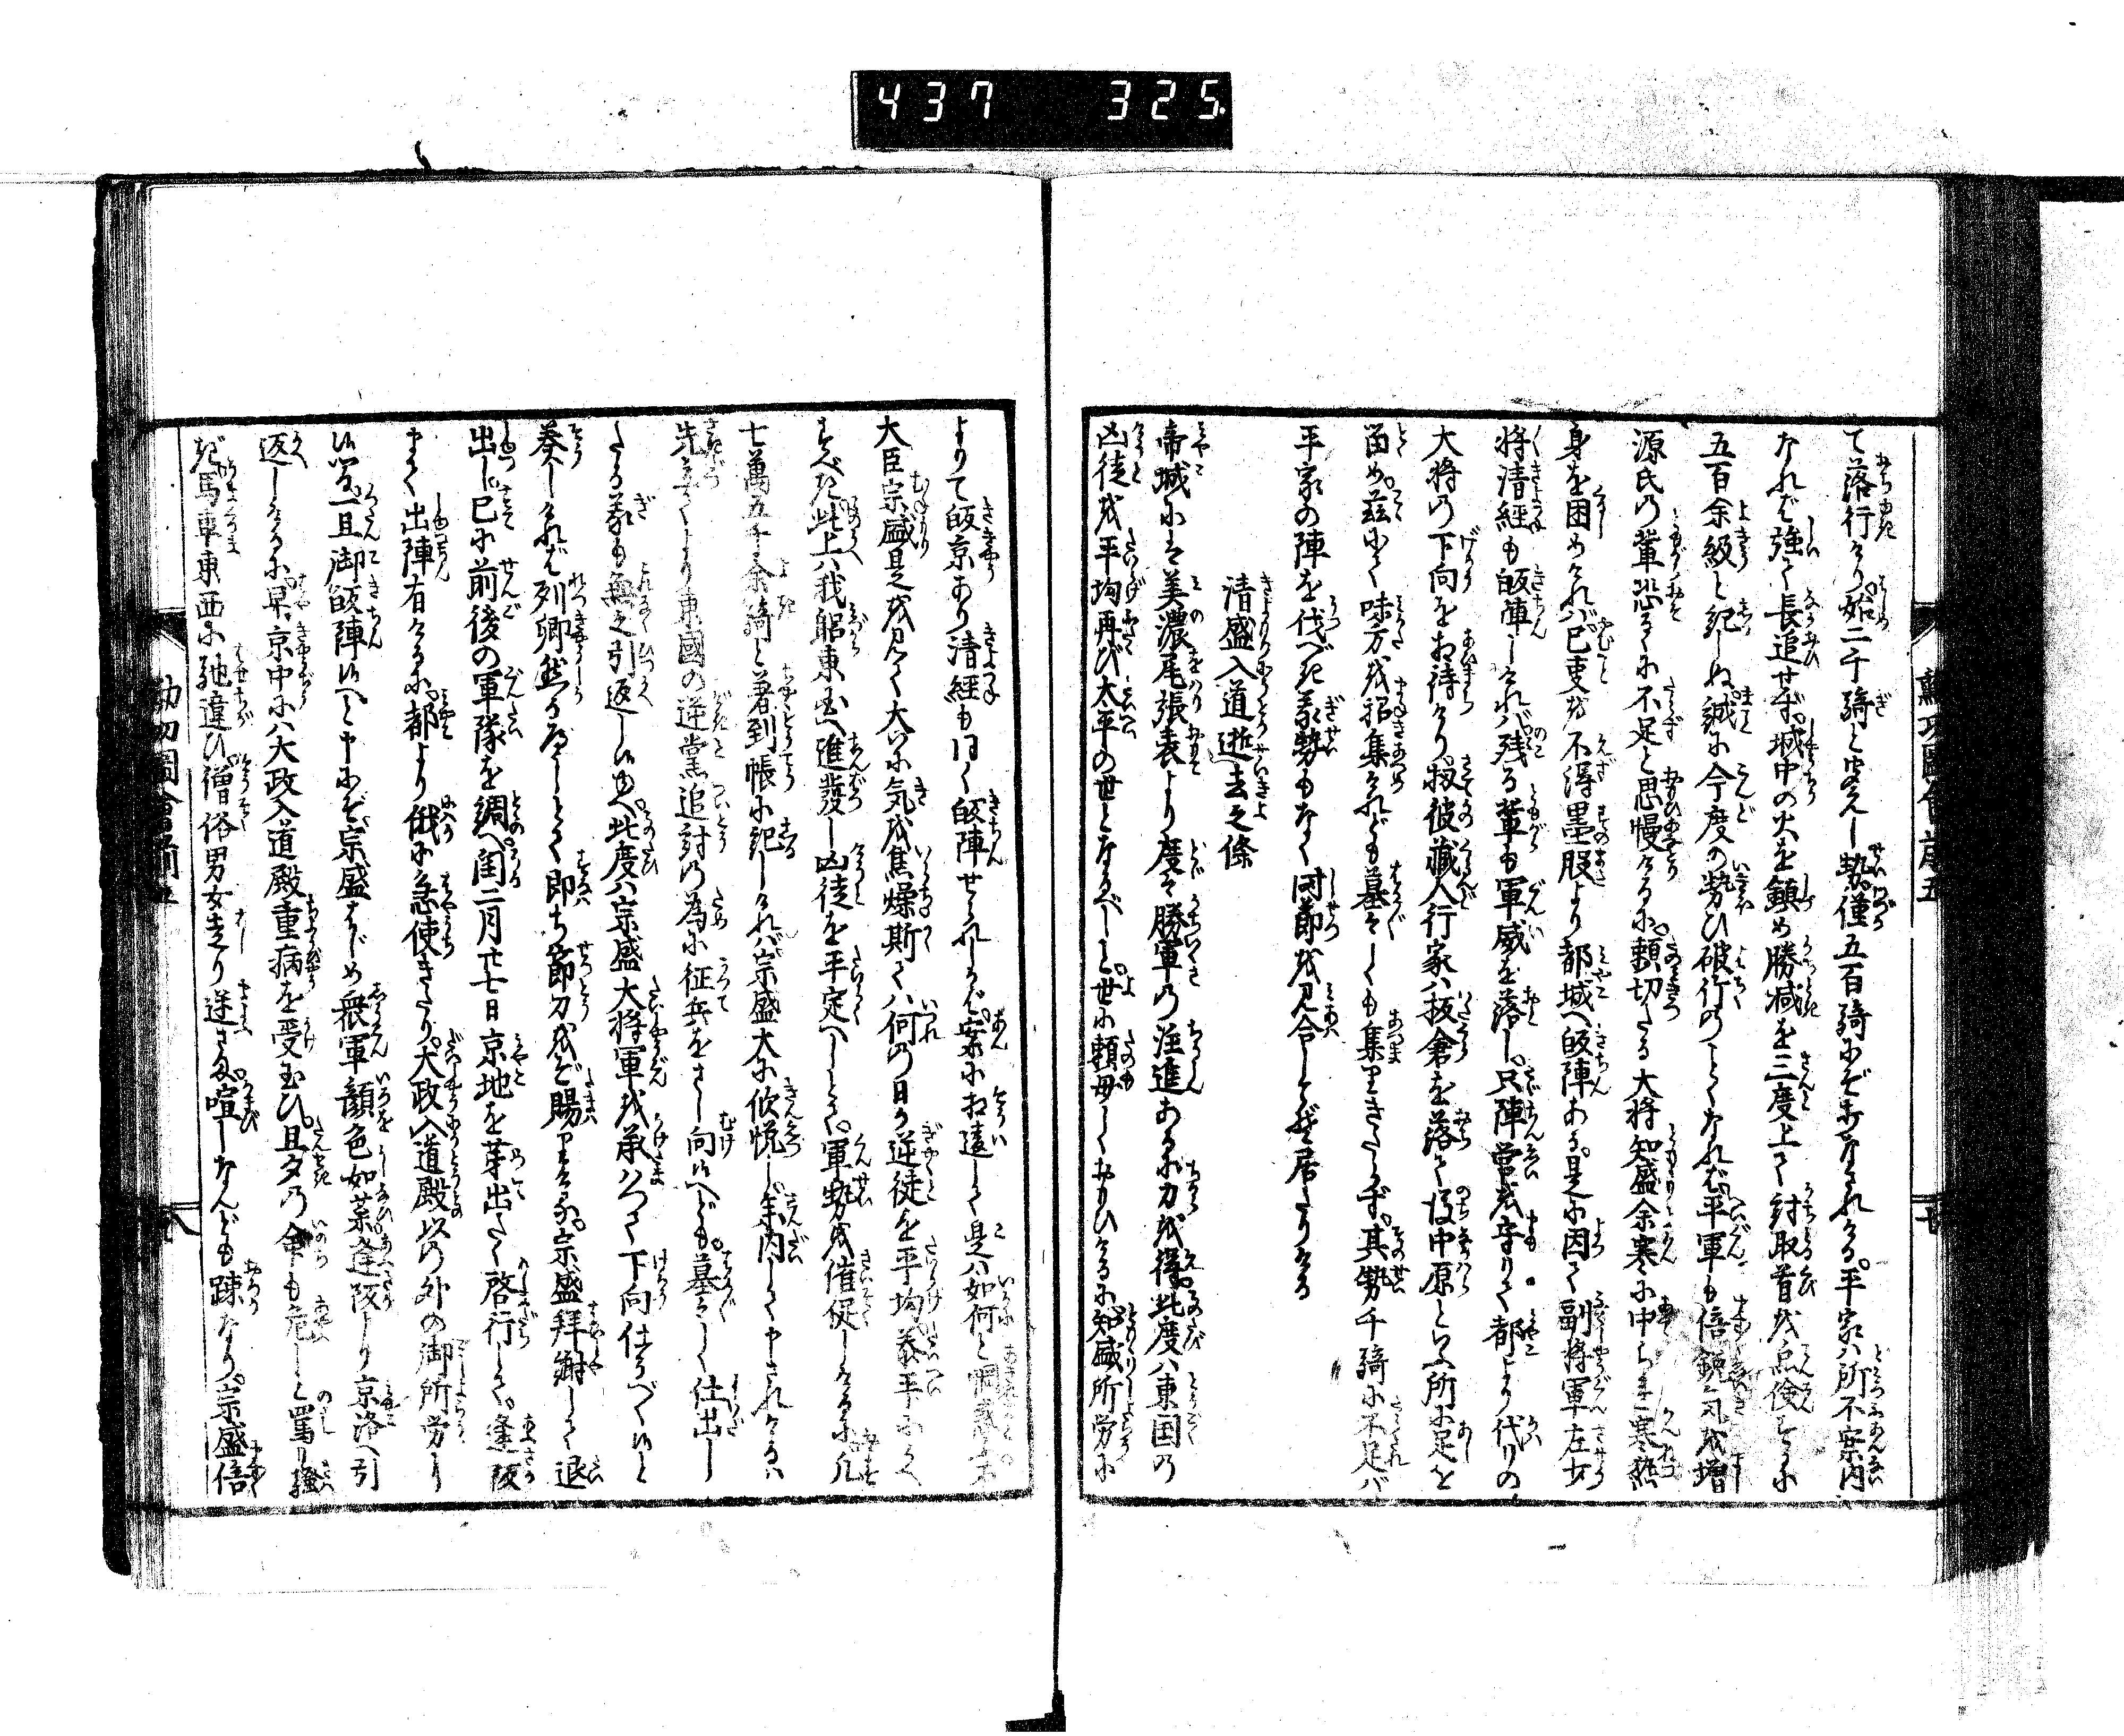 437 325.
て落行けり始二千騎と聞えし勢僅五百騎にぞなされける。平家ハ所不案内
なれバ強て長追せず。城中の火を鎮め勝鬨を三度上て討取首を点検するに
五百余級と紀しぬ。誠に今度の勢ひ破竹のごとくなれバ。平軍も倍鋭気を増
源氏の輩恐るゝに不足と思慢けるに。頼切たる大将知盛余寒に中られ寒熱
身を困めけれバ。已事を不得墨股より都城へ皈陣ある。是に因て副将軍左少
将清経も皈陣しけれバ。残る輩も軍威を落し。只陣営を守りて都より代りの
大将の下向をぞ待けり。扨彼蔵人行家ハ板倉を落て後中原といふ所に足を
留め。茲にて味方を招集けれども墓々しくも集りきたらず。其勢千騎に不足バ
平家の陣を伐べき義勢もなく時節を見合してぞ居たりける
清盛入道逝去之條
帝城にハ美濃尾張表より度々勝軍の注進あるに力を得。此度ハ東国の
凶徒を平均再び太平の世となるべしと。世に頼母しくおもひけるに知盛所労に
よりて皈京あり清経も同く皈陣せられしかバ。案に相違して是ハ如何と惘惑。
大臣宗盛是を見て大いに気を焦燥斯てハ何の日か逆徒を平均。泰平にかへ
すべき。此上ハ我躬東国へ進發し凶徒を平定へしとて。軍勢を催促しけるに凡
七萬五千余騎と着到帳に記しけれバ。宗盛大に欣悦し。参内して申されけるハ
先立てより東國の逆黨追討の為に征兵をさし向候へども。墓々しく仕出し
たる義も無之引返し候間。此度ハ宗盛大将軍を承ハつて下向仕るべく候と
奏しけれバ。列卿然るべしとて。即ち節刀をぞ賜りける。宗盛拝謝して退
出し。已に前後の軍隊を綢へ。閏二月廿七日京地を芽出たく啓行して。逢阪
まで出陣有けるに。都より俄に急使きたり。大政入道殿以の外の御所労に
候間。一旦御皈陣候へと申にぞ。宗盛はじめ衆軍顔色如菜逢阪より京洛へ引
返しけるに。早京中にハ大政入道殿重病を受玉ひ。旦夕の命も危しと罵り騒
ぎ。馬車東西に馳違ひ。僧俗男女走り迷さま。喧しなんども踈なり。宗盛倍